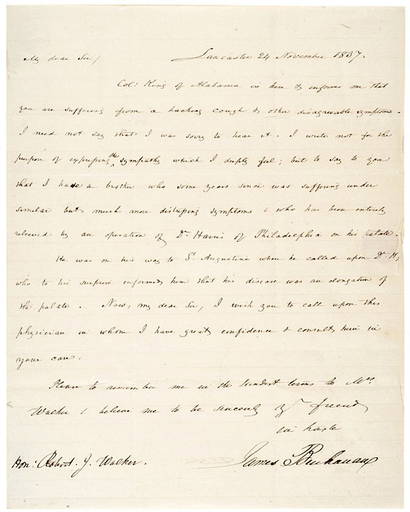 Lancaster 24 November 1837.
My dear Sir,
Col: King of Alabama is here & informs me that
you are suffering from a hacking cough & other disagreeable symptoms.
I need not say that I was sorry to hear it. I write not for the
purpose of expressing the sympathy which I deeply feel; but to say to you
that I had a brother who some years since was suffering under
similar but much more distressing symptoms & who has been entirely
relieved by an operation of Dr Harris of Philadelphia on his palate.
He was on his way to St Augustine when he called upon Dr H,
who to his surprise informed him that his disease was an elongation of
the palate. Now, my dear Sir, I wish you to call upon this
physician in whom I have great confidence & consult him in
your case.
Please to remember me in the kindest terms to Mrs
Walker & believe me to be sincerely yr friend
in haste
James Buchanan
Hon: Robert J. Walker.